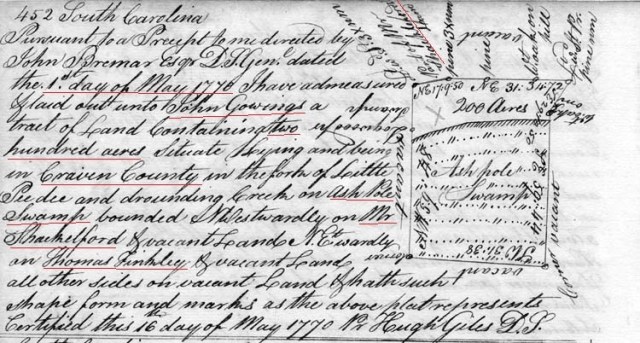 452 South Carolina
Pursuant to a Precept to me directed by
John Bremar Esqr D.S. Gen.l dated
the 1st day of May 1770 I have admeasured
& laid out unto John Gowings a
tract of Land Containing two
hundred acres Situate lying and being
in Craven County in the fork of Little
Peedee and drounding Creek on Ash Pole
Swamp bounded S Westwardly on Mr
Shackelford & vacant Land N.Etwardly
on Thomas Finkley & vacant Land
all other sides on vacant Land & hath such
shape form and marks as the above plat represents
Certified this 16th day of May 1770 Pr Hugh Giles D.S.
200 Acres
Ash pole
Swamp
vacant
vacant
vacant